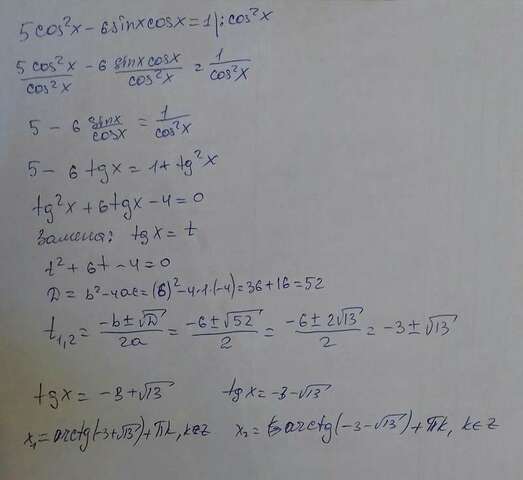 5cos²x - 6sinxcosx = 1 |: cos²x
5cos²x/cos²x - 6 sinxcosx/cos²x = 1/cos²x
5 - 6 sinx/cosx = 1/cos²x
5 - 6 tgx = 1 + tg²x
tg²x + 6tgx - 4 = 0
Замена: tgx = t
t² + 6t - 4 = 0
D = b² - 4ac = (6)² - 4·1·(-4) = 36 + 16 = 52
t₁,₂ = (-b ± √D)/2a = (-6 ± √52)/2 = (-6 ± 2√13)/2 = -3 ± √13
tgx = -3 + √13 tgx = -3 - √13
x₁ = arctg(-3 + √13) + πk, k∈z x₂ = arctg(-3 - √13) + πk, k∈z